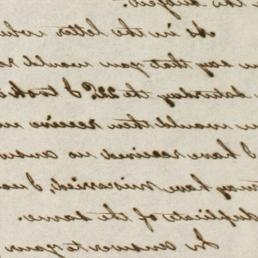 the subject.
As in the letter
say that you would
Saturday the 22d. I took
would then receive
I have received no
may have miscarried, I
duplicate of the same.
In answer to your